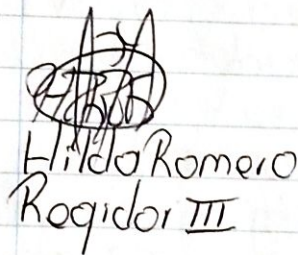 Hildo Romero
Regidor III